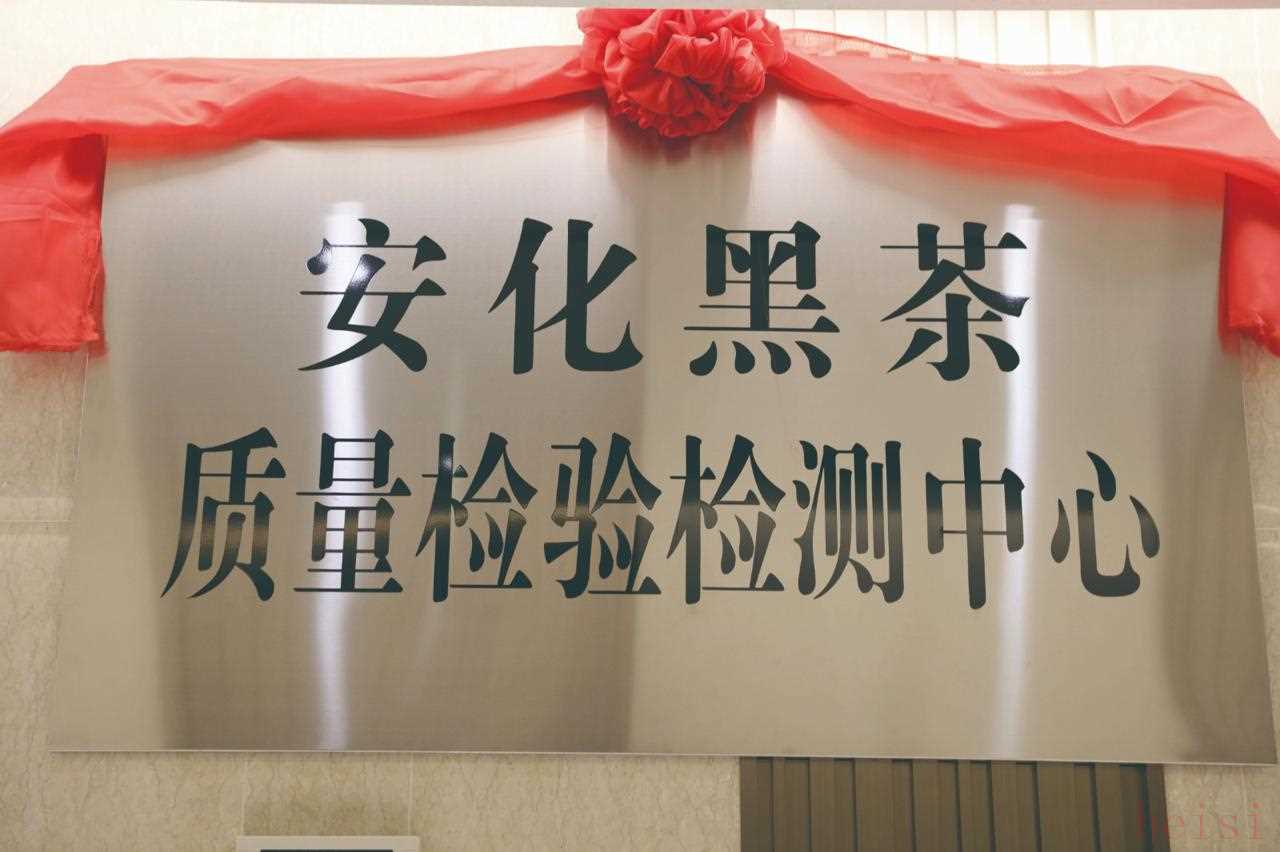 安化黑茶
质量检验检测中心
heisi